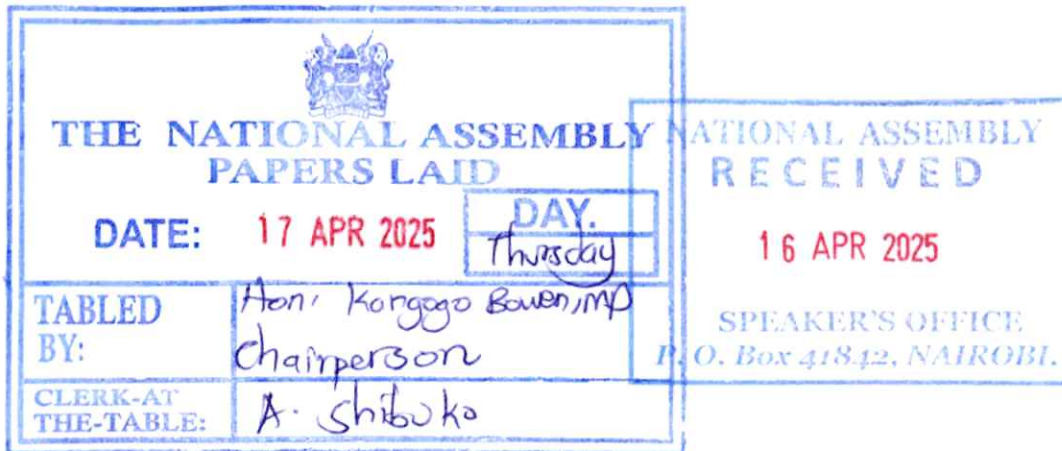 THE NATIONAL ASSEMBLY
PAPERS LAID
DATE: 17 APR 2025
DAY.
Thursday
TABLED BY:
Hon. Korgogo Bowen, MP
Chairperson
CLERK-AT THE-TABLE:
A. Shibuko
NATIONAL ASSEMBLY
RECEIVED
16 APR 2025
SPEAKER'S OFFICE
P. O. Box 41842, NAIROBI.